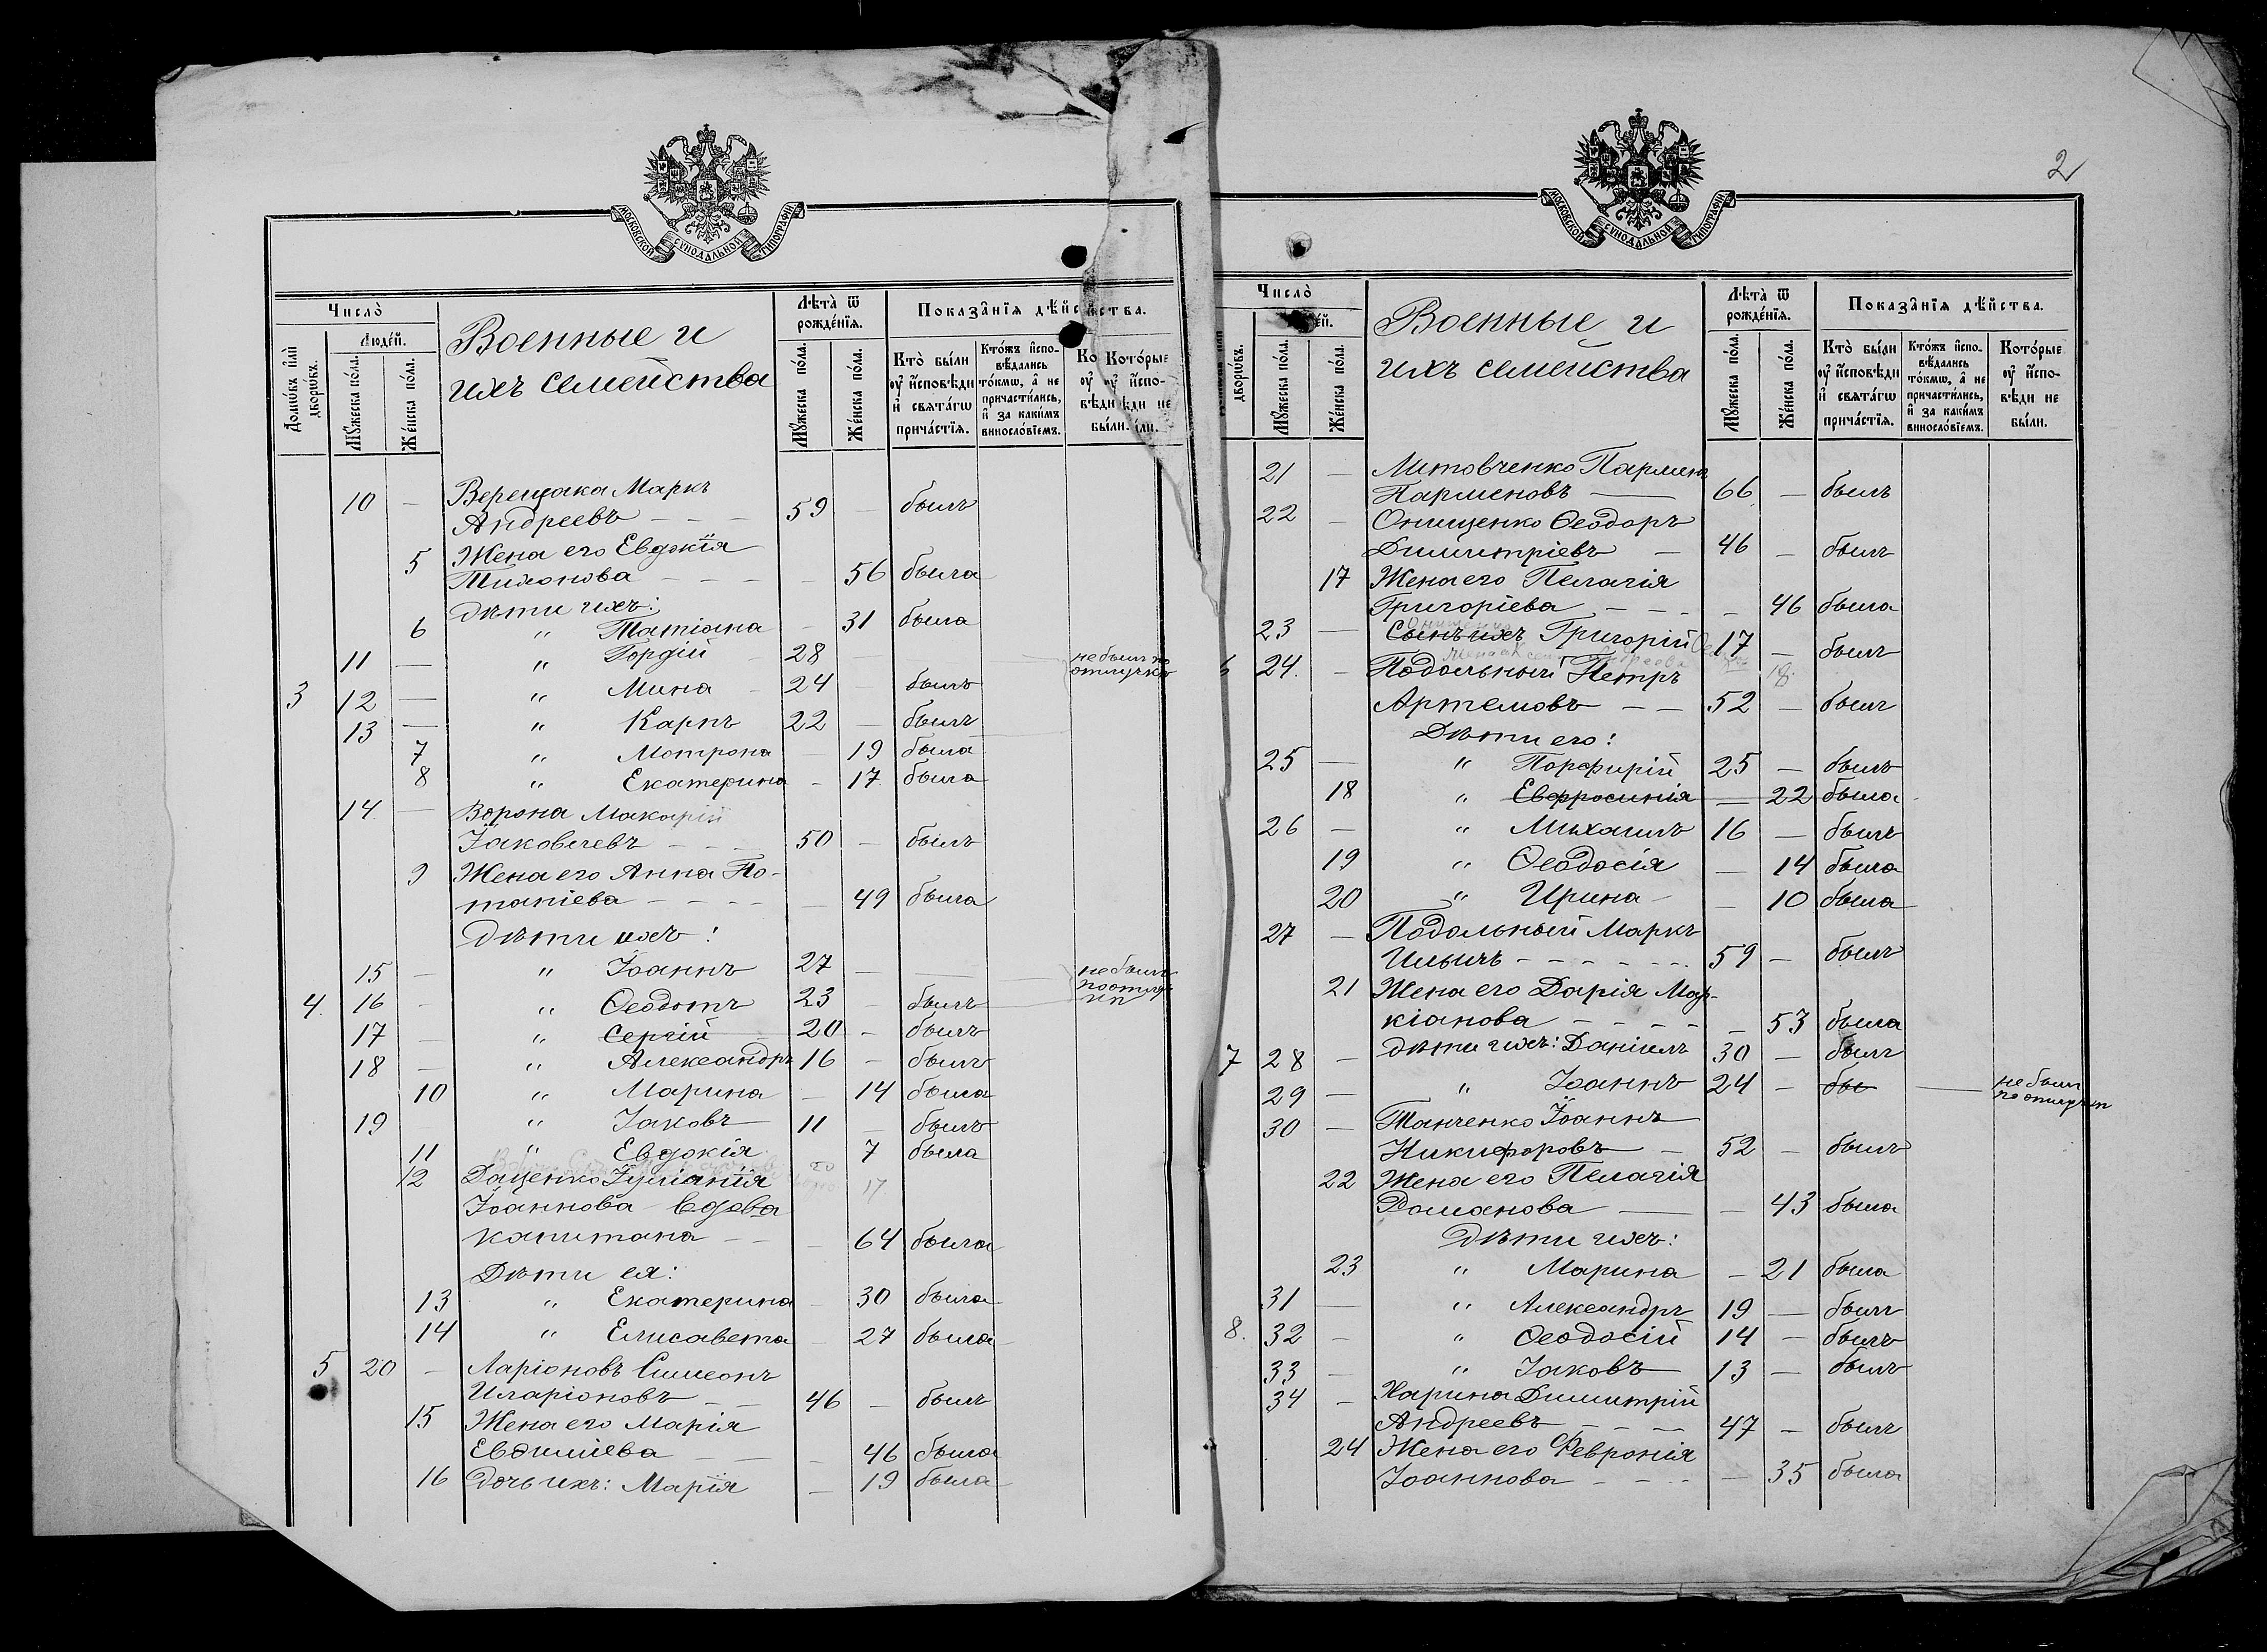 МОСКОВСКОЙ СѴНОДАЛЬНОЙ ТИПОГРАФІИ
Число̀
Людéй.
Домѡвъ и҆лѝ дворѡ́въ.
Мꙋ́жеска по́ла.
Же́нска по́ла.
Военные и
ихъ семейства
Лѣ́та ѿ рожде́нїѧ.
Мꙋ́жеска по́ла.
Же́нска по́ла.
Показа̂нїѧ дѣ́йства.
Кто̀ бы́ли оу҆ и҆́сповѣди и҆ свѧта́гѡ прича́стїѧ.
Кто́жъ и҆сповѣ́дались то́кмѡ, а҆ не причасти́лись, и҆ за каки́мъ винослові́емъ.
Кото́рые оу҆ и҆́сповѣди не бы́ли.
10 — Верещака Маркъ
Андреевъ — — — 59 — былъ
5 Жена его Евдокія
Тимонова — — — — 56 была
Дѣти ихъ:
6 " Татіана — 31 была
11 — " Гордій — 28 не былъ по отлучкѣ
3 12 — " Мина — 24 — былъ
13 — " Карпъ 22 — былъ
7 " Мотрона — 19 была
8 " Екатерина — 17 была
14 — Ворона Макарій
Іаковлевъ — — — 50 — былъ
9 Жена его Анна По-
тапіева — — — — — 49 была
Дѣти ихъ:
15 — " Іоаннъ 27 — — не былъ по отлучкѣ
4. 16 — " Ѳеодотъ 23 — былъ
17 — " Сергій — 20 — былъ
18 — " Александръ 16 — былъ
10 " Марина — 14 была
19 " Іаковъ 11 — былъ
11 " Евдокія 7 была
12 Даценко Іуліанія 17
Іоаннова вдова
капитана — — — 64 была
Дѣти ея:
13 " Екатерина — 30 была
14 " Елисавета — 27 была
5 20 — Ларіоновъ Симеонъ
Иларіоновъ — — 46 — былъ
15 Жена его Марія
Евѳиміева — — — 46 была
16 Дочь ихъ: Марія — 19 была
2
МОСКОВСКОЙ СѴНОДАЛЬНОЙ ТИПОГРАФІИ
Число̀
дворѡ́въ.
Мꙋ́жеска по́ла.
Же́нска по́ла.
Военные и
ихъ семейства
Лѣ́та ѿ рожде́нїѧ.
Мꙋ́жеска по́ла.
Же́нска по́ла.
Показа̂нїѧ дѣ́йства.
Кто̀ бы́ли оу҆ и҆́сповѣди и҆ свѧта́гѡ прича́стїѧ.
Кто́жъ и҆сповѣ́дались то́кмѡ, а҆ не причасти́лись, и҆ за каки́мъ винослові́емъ.
Кото́рые оу҆ и҆́сповѣди не бы́ли.
21 — Литовченко Парменъ
Парменовъ — 66 — былъ
22 — Онищенко Ѳеодоръ
Димитріевъ — 46 — былъ
17 Жена его Пелагія
Григоріева — — — — 46 была
Онищенко
23 — Сынъ ихъ Григорій 17 — былъ
18
6 24. — Подольный Петръ
Артемовъ — — 52 — былъ
Дѣти его:
25 — " Порфирій 25 — былъ
18 " Евфросинія — 22 была
26 — " Михаилъ 16 — былъ
19 " Ѳеодосія — 14 была
20 " Ирина — — 10 была
27 — Подольный Маркъ
Ильичъ — — — — — 59 — былъ
21 Жена его Дарія Мар-
кіанова — — — — — 53 была
7 28 — Дѣти ихъ: Даніилъ 30 — былъ
29 — " Іоаннъ 24 — бы — не былъ по отлучкѣ
30 — Танченко Іоаннъ
Никифоровъ — 52 — былъ
22 Жена его Пелагія
Романова — — 43 была
Дѣти ихъ:
23 " Марина — 21 была
31 — " Александръ 19 — былъ
8. 32 — " Ѳеодосій 14 — былъ
33 — " Іаковъ 13 — былъ
34 — Харина Димитрій
Андреевъ — — 47 — былъ
24 Жена его Февронія
Іоаннова — — — — 35 была